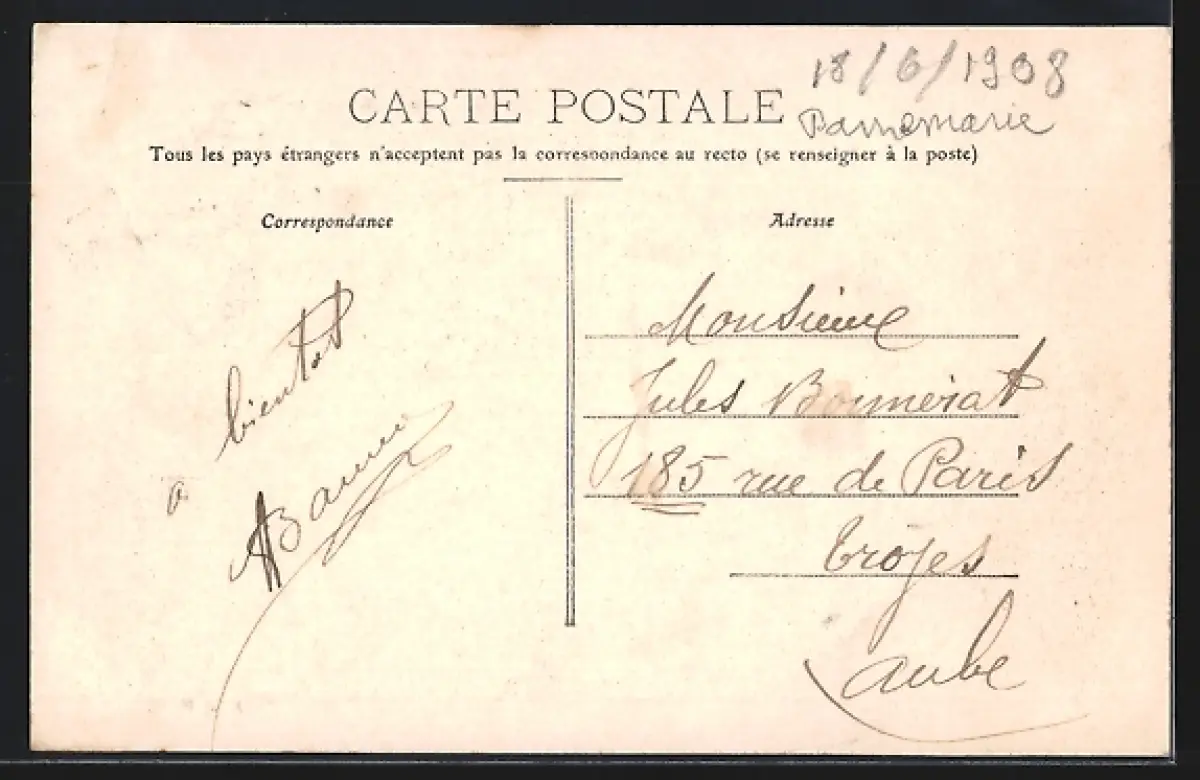 18/6/1908
CARTE POSTALE
Tous les pays étrangers n'acceptent pas la correspondance au recto (se renseigner à la poste)
Correspondance
a bientot
Adresse
Monsieur
Jules
185 rue de Paris
Troyes
Aube